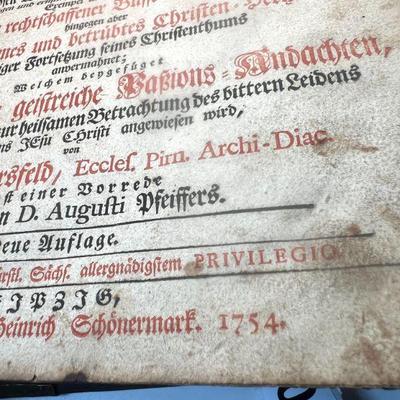 rechtschaffener
hingegen aber
und betrübtes Christen-
Fortsetzung seines Christenthums
anvermahnet;
Welchem beygefüget
geistreiche Paßions-Andachten,
zur heilsamen Betrachtung des bittern Leidens
JEsu CHristi angewiesen wird,
von
rsfeld, Eccles. Pirn. Archi-Diac.
einer Vorrede
n D. Augusti Pfeiffers.
eue Auflage.
Sächs. allergnädigstem PRIVILEGIO.
IPZIG,
Heinrich Schönermark. 1754.